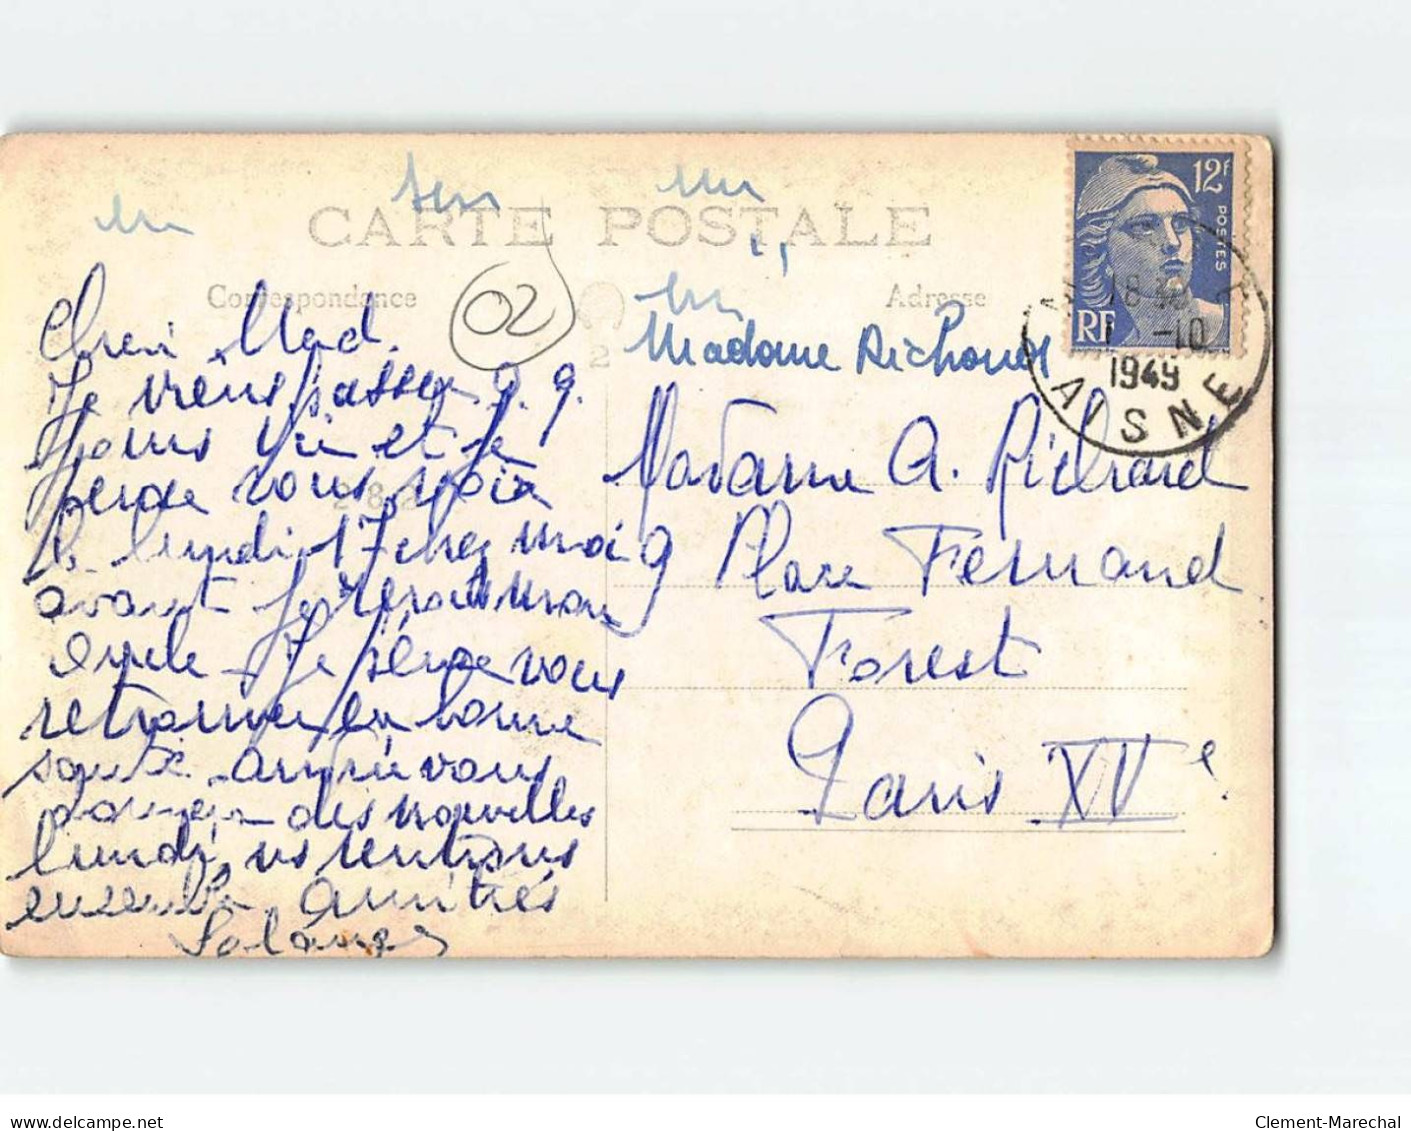 CARTE POSTALE
Correspondance
Adresse
02
2
12F
POSTES
RF
18
1 -10
1949
AISNE
Madame Richard
Cheri Mad.
Je viens passer q. q.
jours ici et je
pense vous voir
le lundi 17 chez moi
avant
Je pense vous
retrouver en bonne
santé
des nouvelles
lundi, ns rentrons
ensemble Amitiés
Solange
Madame A. Richard
9 Place Fernand
Forest
Paris XVe
delcampe.net
Clement-Marechal